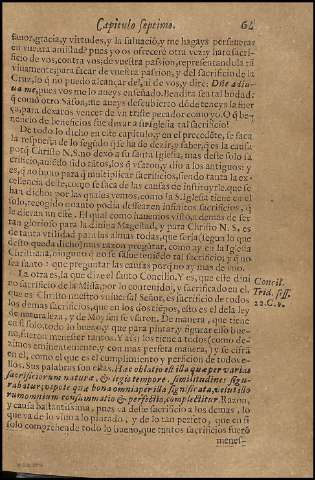 Capitulo septimo. 64
señor, gracia, y virtudes, y la saluació, y me hagays perseuerar
en vuestra amistad? pues yo os ofreceré otra vez y hare sacri-
ficio de vos, contra vos, de vuestra passion, representandola tá
viuamente, para sacar de vuestra passion, y del sacrificio de la
Cruz, lo q̃ no puedo alcançar del, ni de vos, y dire: Dñe adiu-
ua me, pues vos me lo aueys enseñado. bendita sea tal bondad:
q̃ como otro Sáson, me aueys descubierto dó teneys la fuer
ça, para dexaros vencer de vn triste pecador como yo. O q̃ be-
neficio de beneficios fue dexar a su Iglesia tal sacrificio!
De todo lo dicho en este capitulo, y en el precedéte, se saca
la respuesta de lo segúdo q̃ se ha de dezir, y saber, q̃ es la causa
porq̃ Christo N.S. no dexó a su santa Iglesia, mas deste solo sa
crificio, auiédo sido tátos, los q̃ vsaron, y dio a los antiguos: y
es, q̃ no huuo para q̃ multiplicar sacrificios, siendo tanta la ex-
celencia deste, como se saca de las causas de instituyrle, que se
han dicho: por las quales vemos, como la S. Iglesia tiene en el
solo, recogido quanto podia dessear en infinitos sacrificios, q̃
le dieran sin este. El qual como hauemos visto, ademas de ser
tan glorioso para la diuina Magestad, y para Christo N. S. es
de tanta vtilidad para las almas todas, que seria (segun lo que
desto queda dicho) mas razon preguntar, como ay en la Iglesia
Christiana, ninguno q̃ no se salue teniédo tal sacrificio; y q̃ no
sea santo: que preguntar las causas porque no ay mas de vno.
La otra es, la que da el santo Concilio. Y es, que este diui
no sacrificio de la Missa, por lo contenido, y sacrificado en el.
que es Christo nuestro vniuersal Señor, es sacrificio de todos
los demas sacrificios, que en los dos tiépos, esto es el de la ley
de naturaleza, y de Moysen se vsaron. De manera, que tiene
en si solo, todo lo bueno, y que para pintar, y figurar esto bue-
no, fueron menester tantos. Y assi los tiene a todos (como de-
zimos) eminentemente, y con mas perfeta manera, y se cifra
en el, como el que es el cumplimiento y perficion de todos e-
llos. Sus palabras son estas. Hæc oblatio est illa quæ per varias
sacrificiorum naturæ, & legis tempore, similitudines figu-
rabatur, vtpote quæ bona omnia per illa significata, velut illo
rum omnium consummatio & perfectio, complectitur. Razon,
y causa bastantissima, pues va deste sacrificio a los demas, lo
que va de lo viuo a lo pintado, y de lo tan perfeto, que en si
solo comprehende todo lo bueno, que tantos sacrificios fueró
menes-
Concil.
Trid. sess.
22. C. 1.